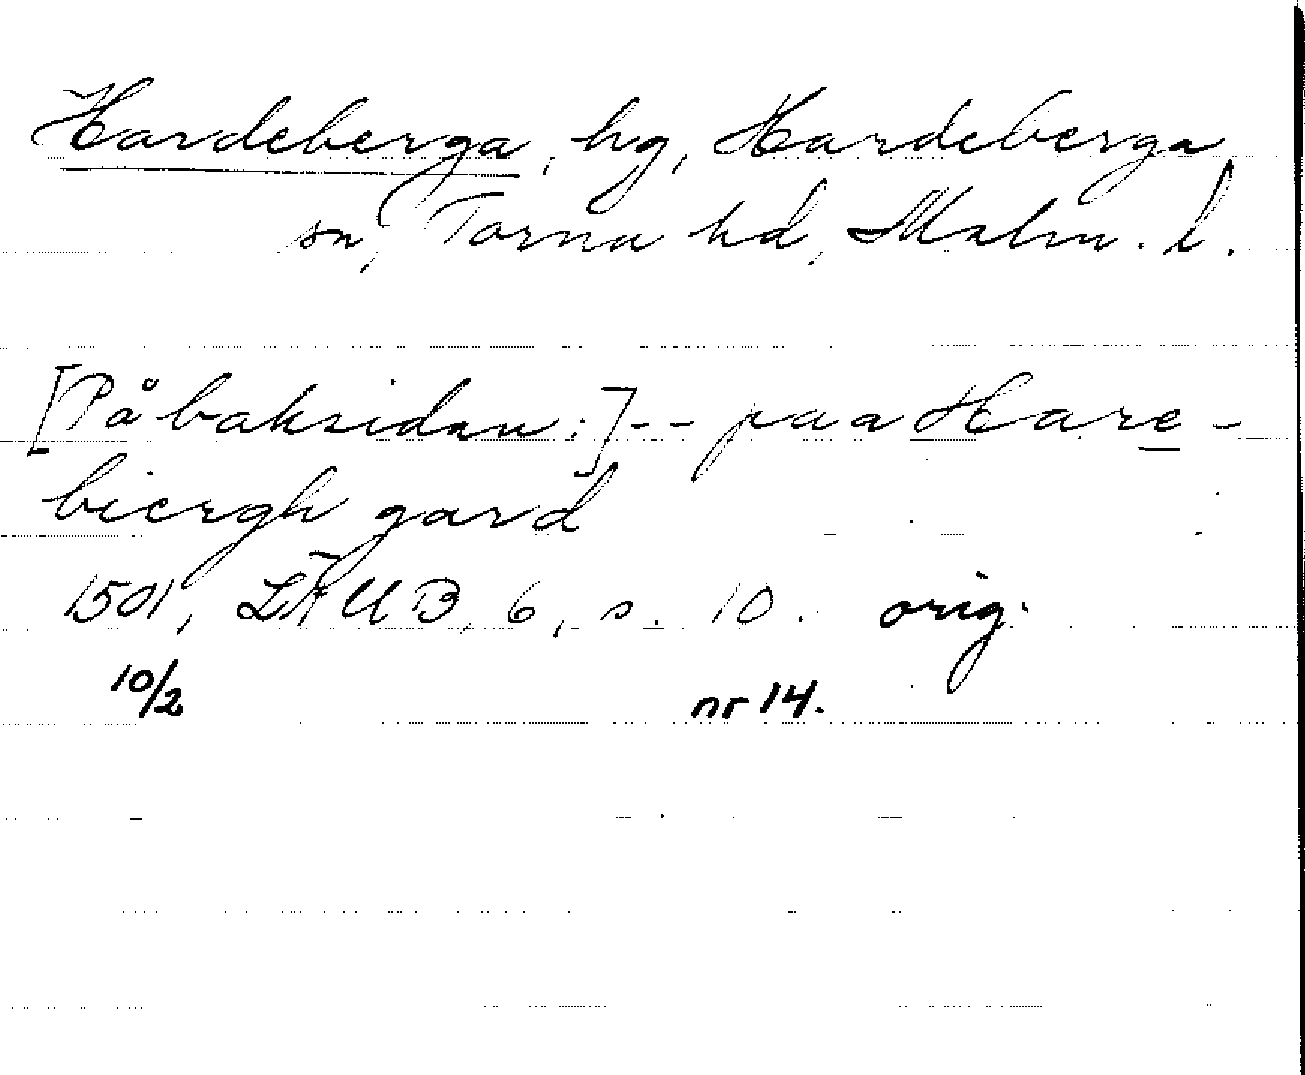 Hardeberga, hg, Hardeberga
sn, Torna hd, Malm. l.
[På baksidan:] -- paa Hare-
biergh gard
1501, LÄUB, 6, s. 10. orig.
10/2 nr 14.